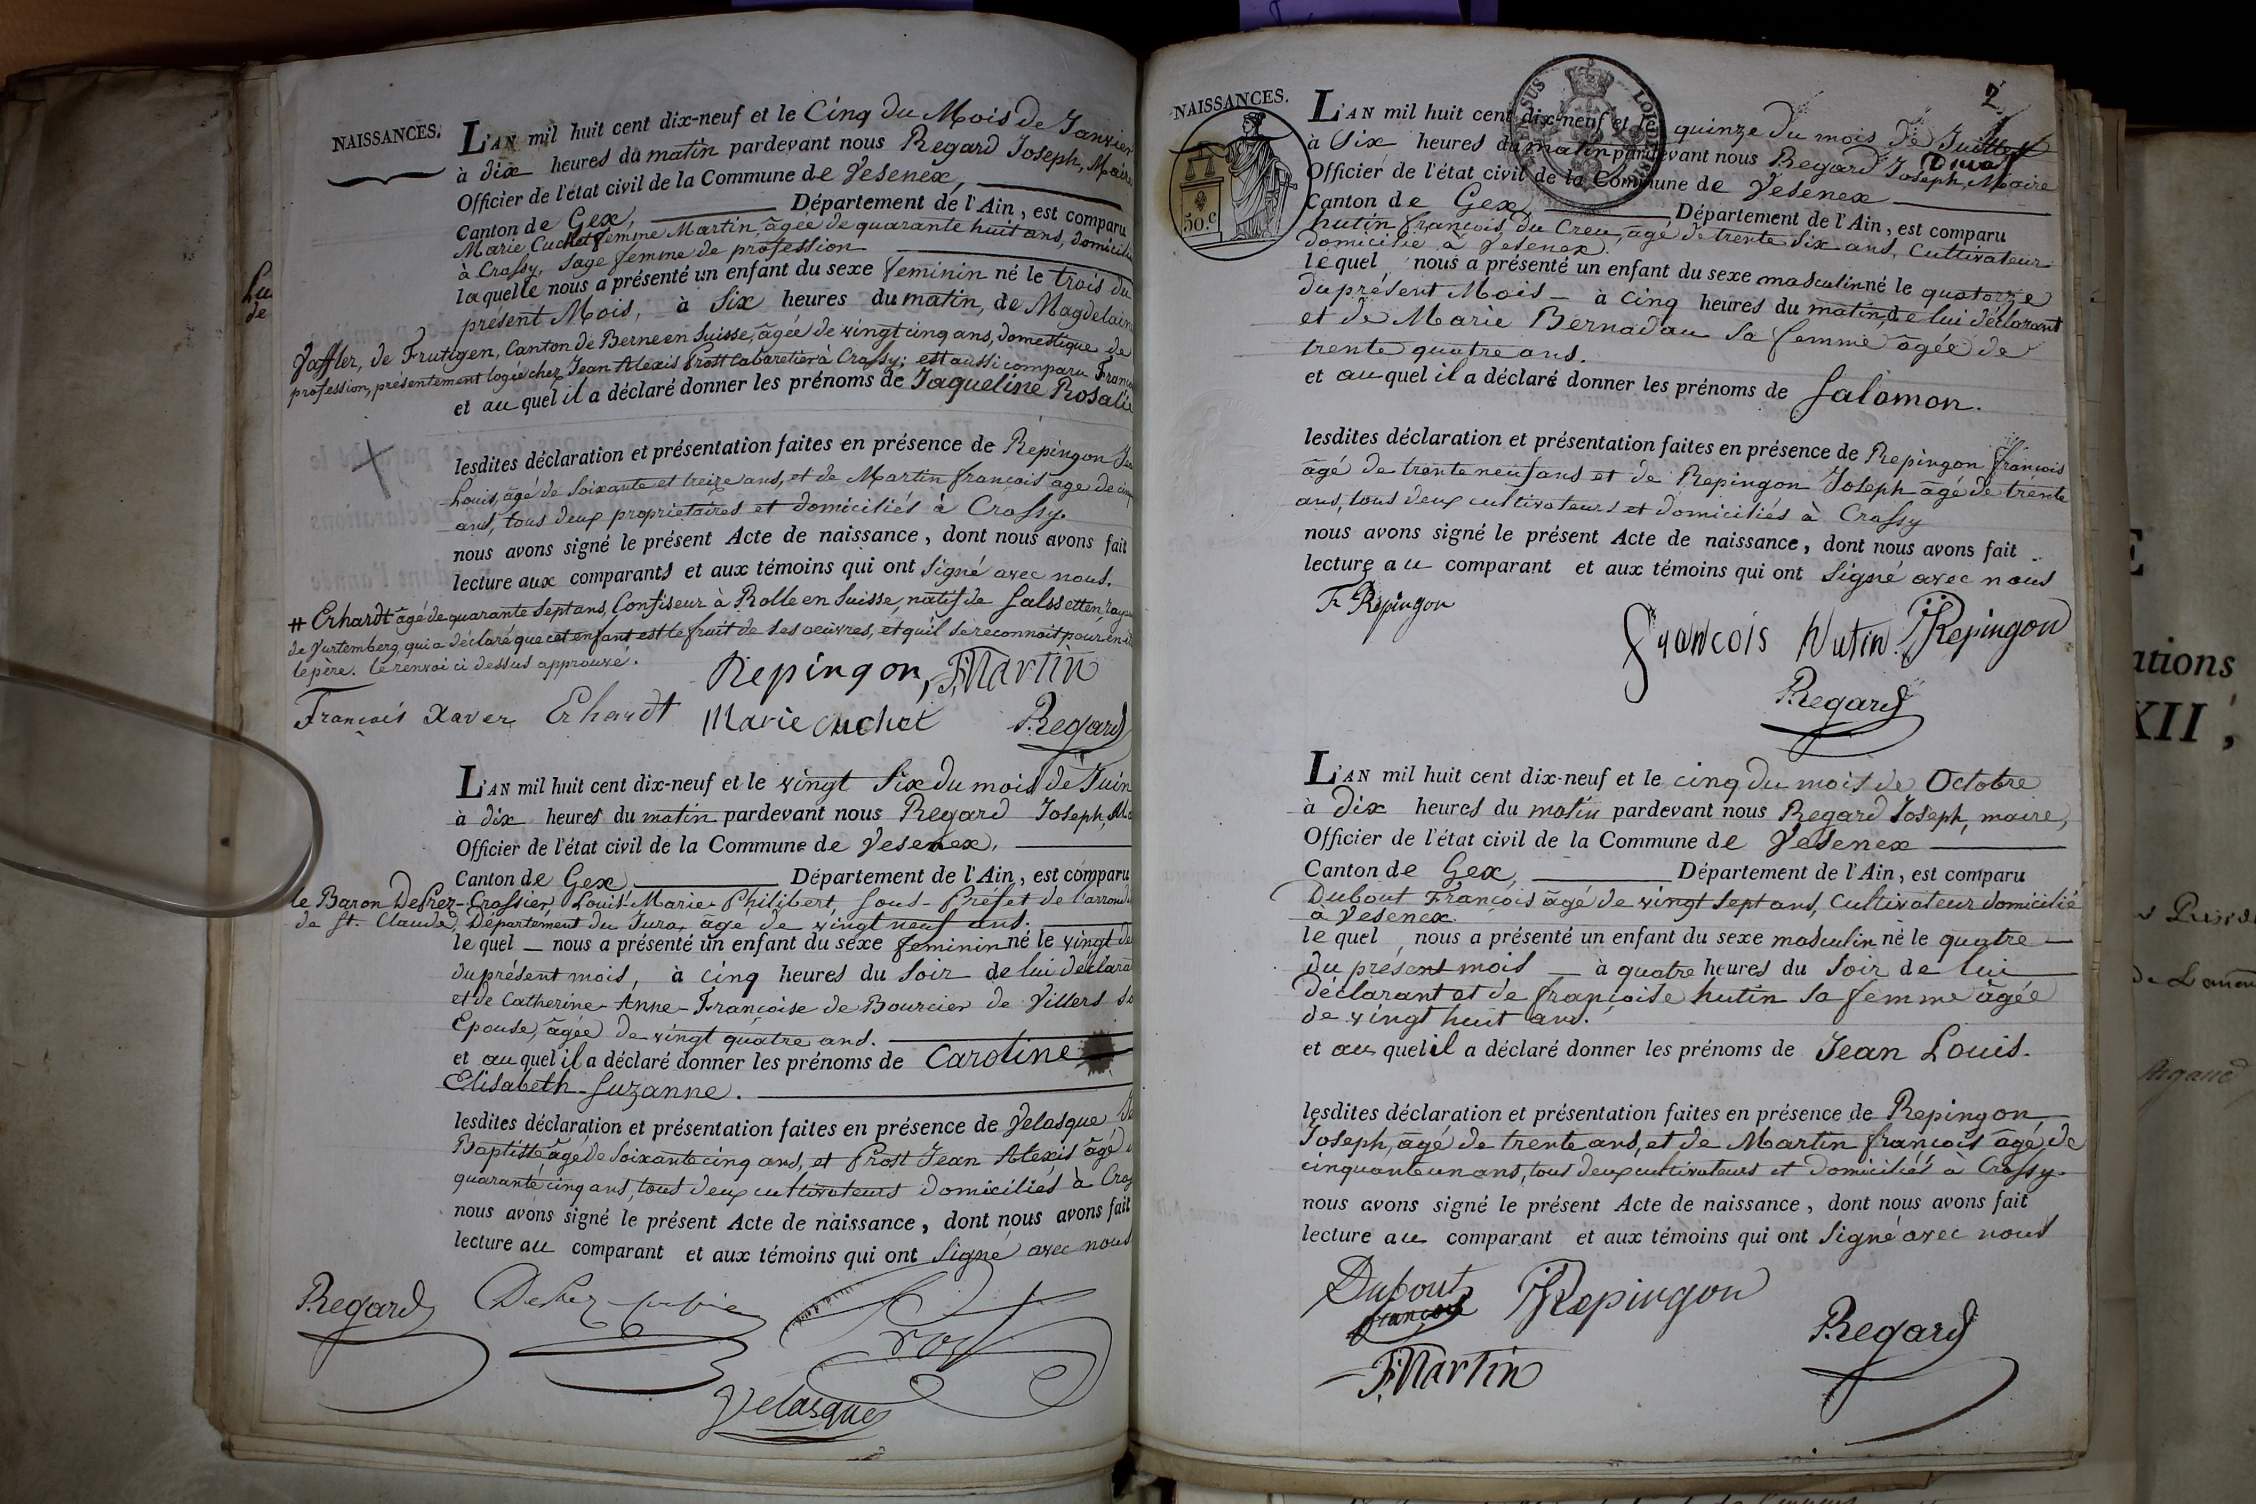 NAISSANCES.
L'AN mil huit cent dix-neuf et le Cinq du Mois de Janvier
à dix heures du matin pardevant nous Regard Joseph, Maire
Officier de l'état civil de la Commune de Vesenex,
Canton de Gex, Département de l'Ain, est comparu
Marie Cuchet femme Martin, âgée de quarante huit ans, domiciliée
à Crassy, Sage femme de profession
laquelle nous a présenté un enfant du sexe feminin né le trois du
présent Mois, à Six heures du matin, de Magdelaine
Jaffler, de Frutigen, Canton de Berne en Suisse, âgée de vingt cinq ans, domestique de
profession, présentement logée chez Jean Alexis Prost Cabaretier à Crassy; est aussi comparu
et auquel il a déclaré donner les prénoms de Jaqueline Rosalie
lesdites déclaration et présentation faites en présence de Repingon
Louis, âgé de Soixante et treize ans, et de Martin françois age de
ans, tous deux propriétaires et domiciliés à Crassy.
nous avons signé le présent Acte de naissance, dont nous avons fait
lecture aux comparants et aux témoins qui ont Signé avec nous.
# Erhardt âgé de quarante Sept ans, Confiseur à Rolle en Suisse, natif de
de Vurtemberg, qui a déclaré que cet enfant est le fruit de Ses oeuvres, et qu'il Se reconnoit pour en
le père. le renvoi ci dessus approuvé.
Repingon, F. Martin
François Xaver Erhardt Marie Cuchet Regard
L'AN mil huit cent dix-neuf et le vingt Six du mois de Juin
à dix heures du matin pardevant nous Regard Joseph,
Officier de l'état civil de la Commune de Vesenex,
Canton de Gex, Département de l'Ain, est comparu
le Baron DePrez-Crassier, Louis-Marie-Philibert, Sous-Préfet de l'arrond
de St. Claude, Département du Jura, âgé de vingt neuf ans.
lequel nous a présenté un enfant du sexe feminin né le vingt
du présent mois, à cinq heures du Soir de lui déclarant
et de Catherine-Anne-Françoise de Bourcier de Villers
Epouse, âgée de vingt quatre ans.
et auquel il a déclaré donner les prénoms de Caroline
Elisabeth-Suzanne.
lesdites déclaration et présentation faites en présence de Velasque
Baptiste âgé de Soixante cinq ans, et Prost Jean Alexis âgé
quarante cinq ans, tous deux cultivateurs domiciliés à
nous avons signé le présent Acte de naissance, dont nous avons fait
lecture au comparant et aux témoins qui ont Signé avec nous
Regard
Prost
Velasque
2
NAISSANCES.
50.c
L'AN mil huit cent dix-neuf et le quinze du mois de Juillet
à Six heures du matin pardevant nous Regard Joseph, Maire
Officier de l'état civil de la Commune de Vesenex
Canton de Gex, Département de l'Ain, est comparu
hutin françois, du Creu, âgé de trente Six ans, Cultivateur
domicilié à Vesenex.
lequel nous a présenté un enfant du sexe masculin né le quatorze
du présent Mois à Cinq heures du matin, de lui déclarant
et de Marie Bernadau Sa femme âgée de
trente quatre ans.
et auquel il a déclaré donner les prénoms de Salomon.
lesdites déclaration et présentation faites en présence de Repingon françois
âgé de trente neuf ans et de Repingon Joseph âgé de trente
ans, tous deux cultivateurs et domiciliés à Crassy
nous avons signé le présent Acte de naissance, dont nous avons fait
lecture au comparant et aux témoins qui ont Signé avec nous
Fr Repingon
francois Hutin JRepingon
Regard
L'AN mil huit cent dix-neuf et le cinq du mois de Octobre
à Dix heures du matin pardevant nous Regard Joseph, maire,
Officier de l'état civil de la Commune de Vesenex
Canton de Gex, Département de l'Ain, est comparu
Dubout François âgé de vingt Sept ans, Cultivateur domicilié
à Vesenex.
lequel, nous a présenté un enfant du sexe masculin né le quatre
du présent mois à quatre heures du Soir de lui
déclarant et de françoise hutin Sa femme âgée
de vingt huit ans.
et auquel il a déclaré donner les prénoms de Jean Louis.
lesdites déclaration et présentation faites en présence de Repingon
Joseph, âgé de trente ans, et de Martin françois âgé de
cinquante un ans, tous deux cultivateurs et domiciliés à Crassy.
nous avons signé le présent Acte de naissance, dont nous avons fait
lecture au comparant et aux témoins qui ont Signé avec nous
Dubout JRepingon
francois
Regard
F. Martin
ations
XII;